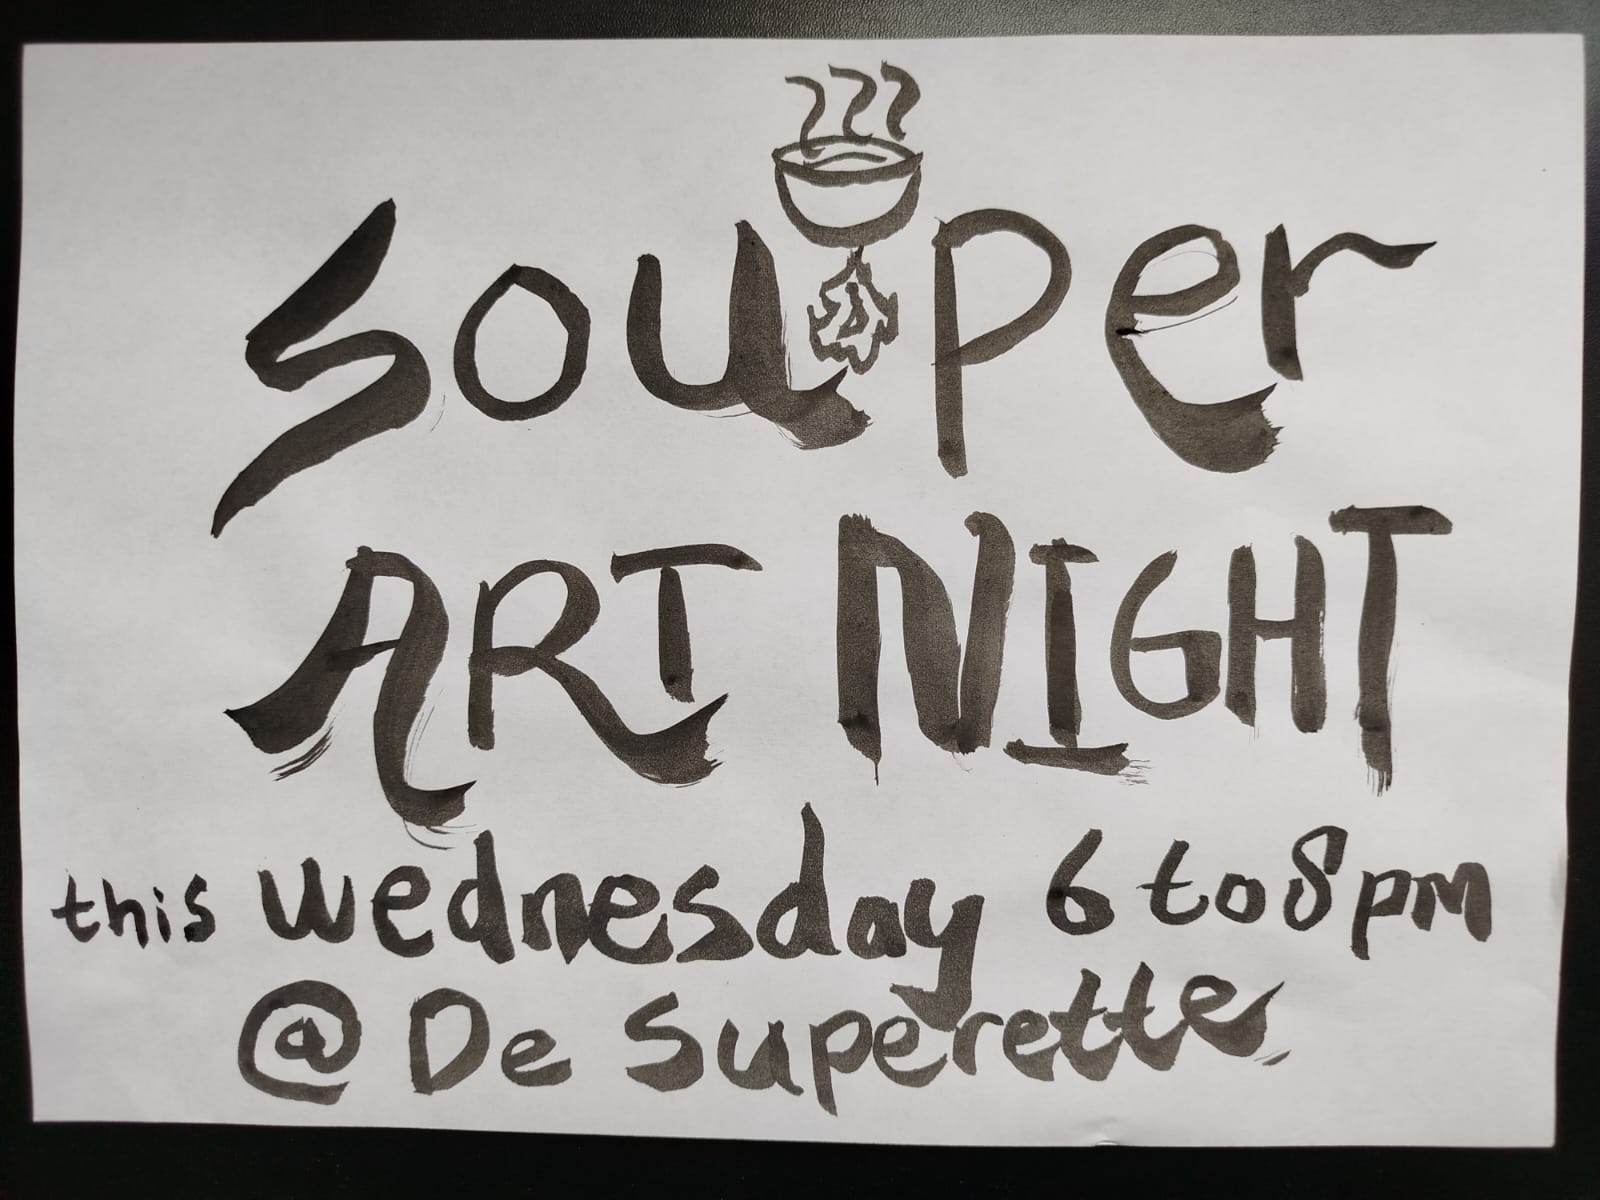 souper
ART NIGHT
this wednesday 6 to 8 pm
@ De Superette